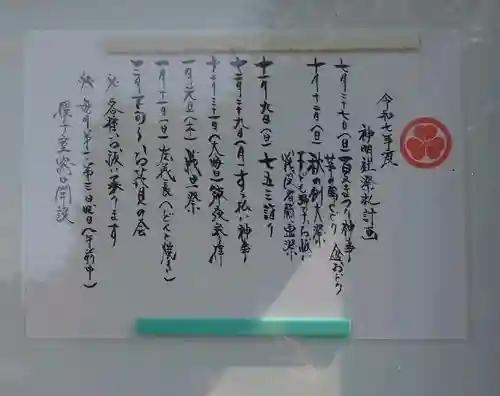 令和七年度
神明社祭礼計画
七月二十七日(日)夏まつり神事
茅の輪くぐり 盆おどり
十月十二日(日)秋の例大祭
子ども獅子お祓い
戦没者慰霊祭
十一月九日(日)七五三詣り
十二月二十九日(月)すゝ払い神事
十二月三十一日(大晦日)
一月元旦(木)歳旦祭
一月十一日(日)左義長(どんど焼き)
の会
※各種お祓い承ります
※毎月第一、第三日曜日(午前中)
授与室窓口開設